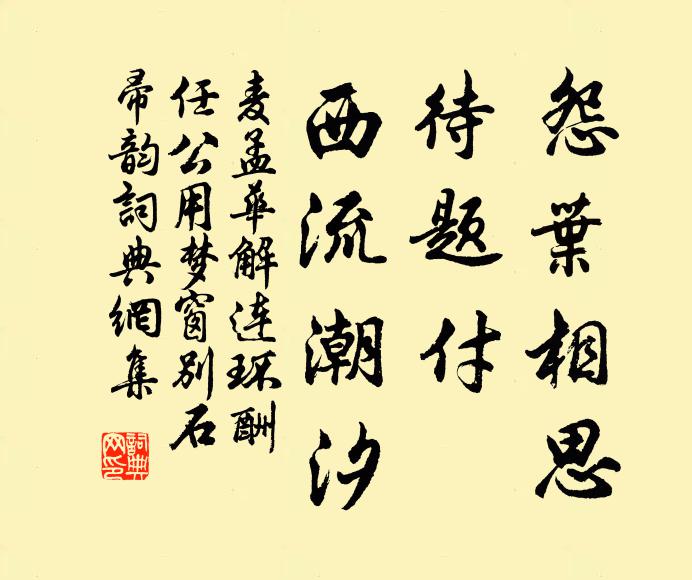 怨葉相思
待題付
西流潮汐
麦孟華解連环酬
任公用梦窗别石
帚韵詞典網集
詞典網印